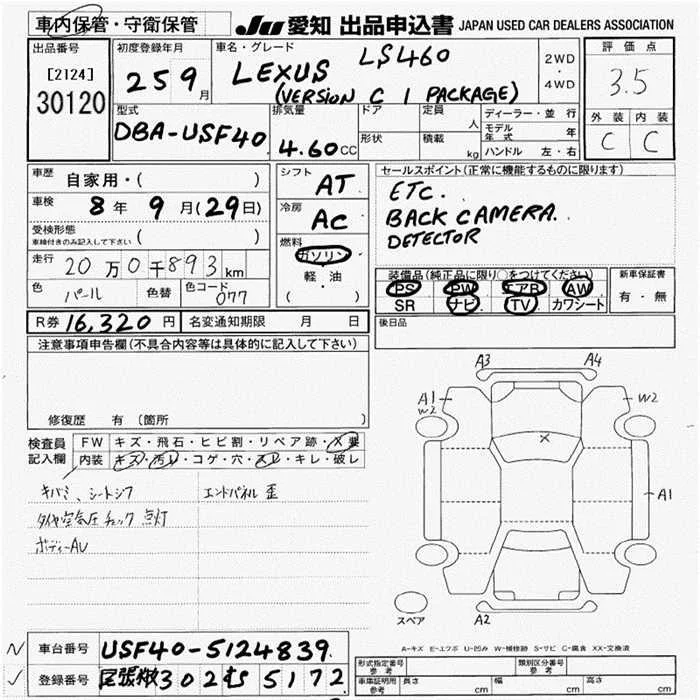 車内保管・守衛保管
JU 愛知 出品申込書 JAPAN USED CAR DEALERS ASSOCIATION
出品番号
[2124]
30120
初度登録年月
25 9月
車名・グレード
LEXUS LS460
(VERSION C I PACKAGE)
2WD
・
4WD
評価点
3.5
外装 内装
C C
型式
DBA-USF40
排気量
4.60 CC
ドア
形状
定員
人
積載
kg
ディーラー・並行
モデル年式 年
ハンドル 左・右
車歴 自家用・( )
車検 8年 9月(29日)
受検形態
車検付きのみ記入して下さい ( )
走行 20万0千893km
色 パール 色替 色コード 077
シフト AT
冷房 AC
燃料
ガソリン
軽・油
( )
セールスポイント(正常に機能するものに限ります)
ETC.
BACK CAMERA.
DETECTOR
装備品(純正品に限り○をつけてください)
PS PW エアB AW
SR ナビ TV カワシート
新車保証書
有・無
R券 16,320円 名変通知期限 月 日
後日品
注意事項申告欄(不具合内容等は具体的に記入して下さい)
修復歴 有 (箇所 )
検査員記入欄
FW キズ・飛石・ヒビ割・リペア跡・X要
内装 キズ・汚レ・コゲ・穴・スレ・キレ・破レ
キバミ、シートシワ エンドパネル 歪
タイヤ空気圧チェック 点灯
ボディーAU
A3 A4
A1 W2
W2
X
A1
A2
スペア
A-キズ E-エクボ U-凹み W-補修跡 S-サビ C-腐食 XX-交換済
N 車台番号 USF40-5124839
✓ 登録番号 尾張小牧 302 む 5172
形式指定番号 参考 類別区分番号 参考
車庫証明用 参考 長さ cm 幅 cm 高さ cm